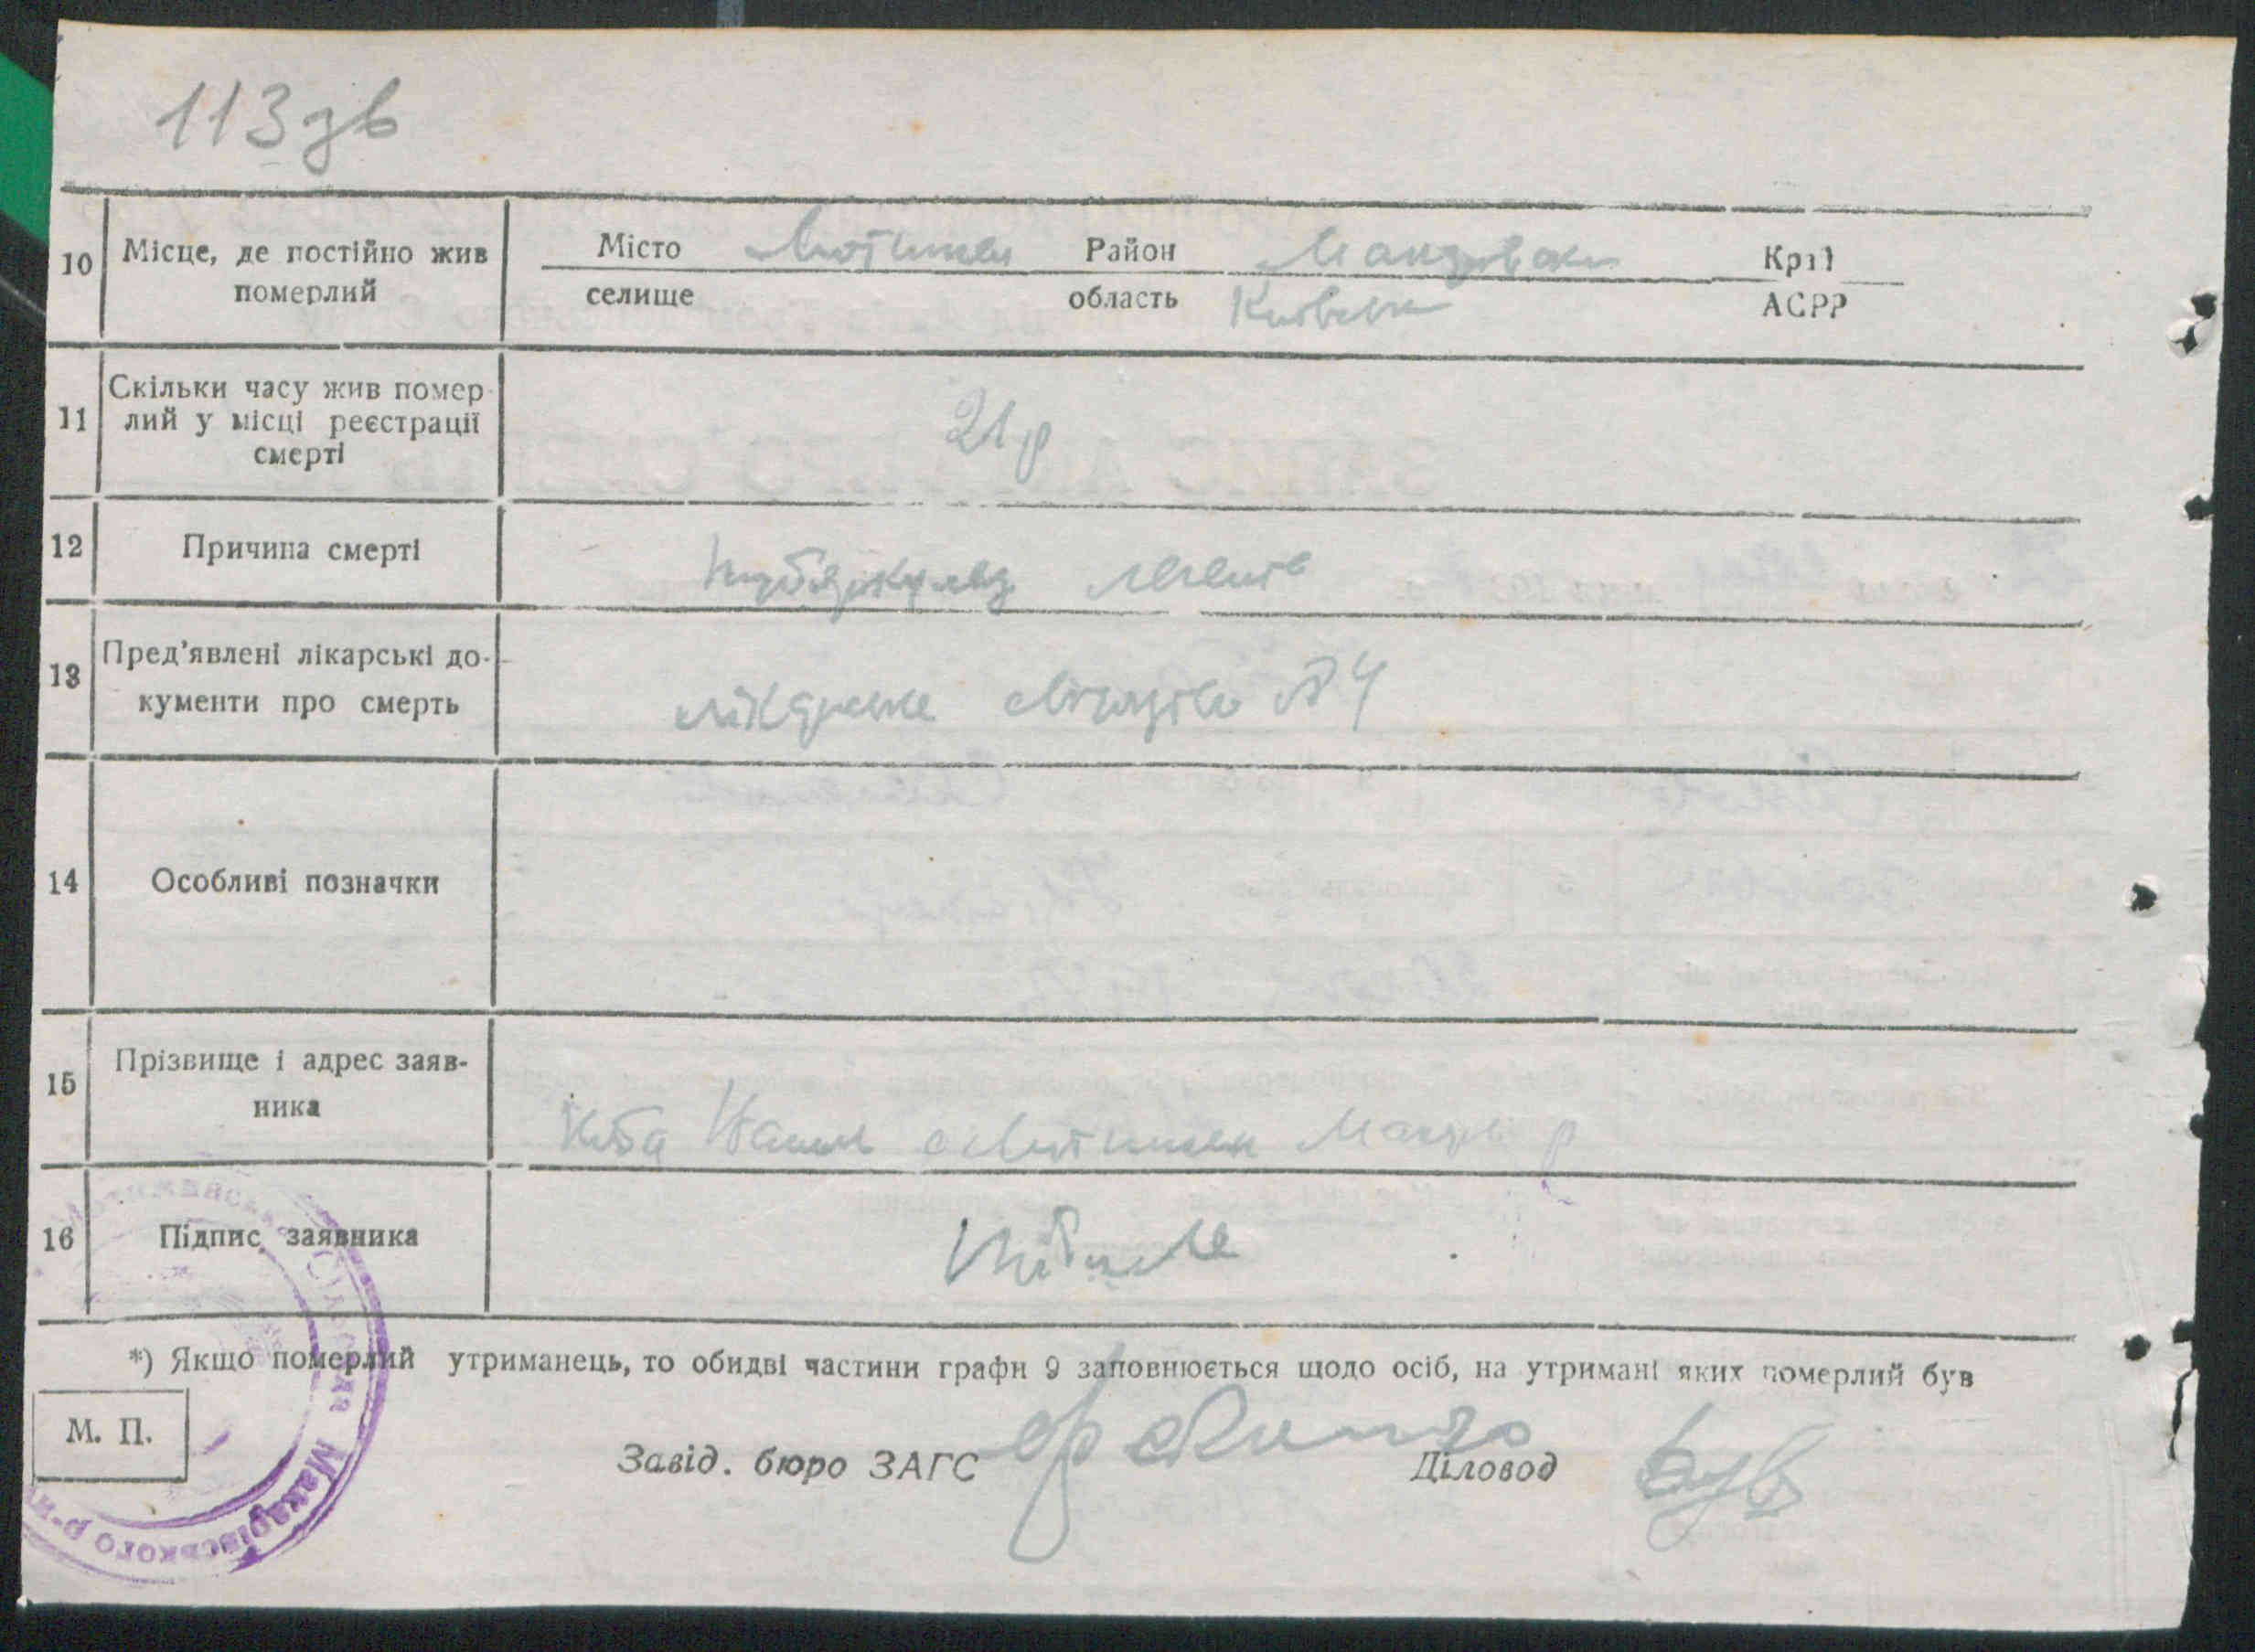 113зв
10 Місце, де постійно жив померлий
Місто Мотижин Район Макарівськ Край
селище область Київськ АСРР
11 Скільки часу жив помер-
лий у місці реєстрації
смерті
21 р
12 Причина смерті
туберкульоз легенів
13 Пред'явлені лікарські до-
кументи про смерть
лікарське свідоцтво № 4
14 Особливі позначки
15 Прізвище і адрес заяв-
ника
с Мотижин Макарів р
16 Підпис заявника
*) Якщо померлий утриманець, то обидві частини графи 9 заповнюється щодо осіб, на утримані яких померлий був
М. П.
Завід. бюро ЗАГС
Діловод
Мотижинська Сільська Рада Макарівського р-н